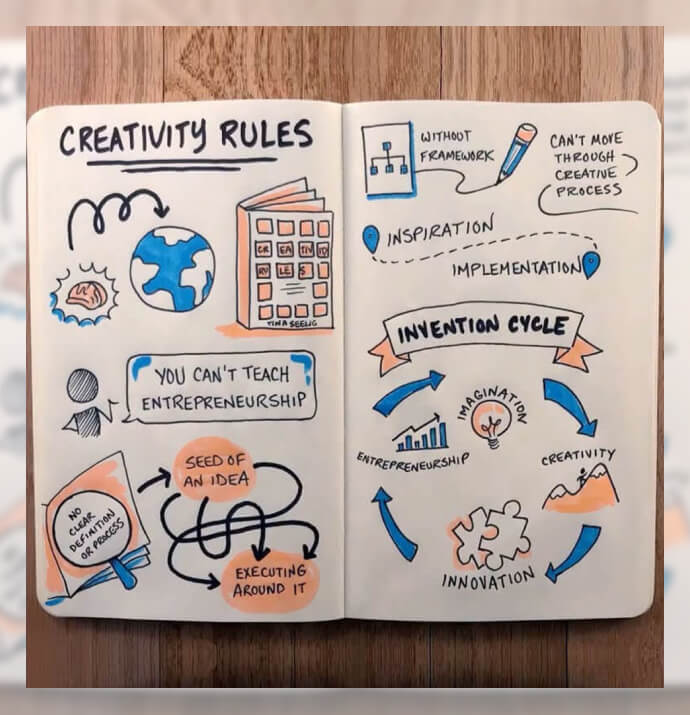 CREATIVITY RULES
CR EA TIV ITY
RU LE S
TINA SEELIG
YOU CAN'T TEACH
ENTREPRENEURSHIP
NO
CLEAR
DEFINITION
OR PROCESS
SEED OF
AN IDEA
EXECUTING
AROUND IT
WITHOUT
FRAMEWORK
CAN'T MOVE
THROUGH
CREATIVE
PROCESS
INSPIRATION
IMPLEMENTATION
INVENTION CYCLE
IMAGINATION
CREATIVITY
INNOVATION
ENTREPRENEURSHIP